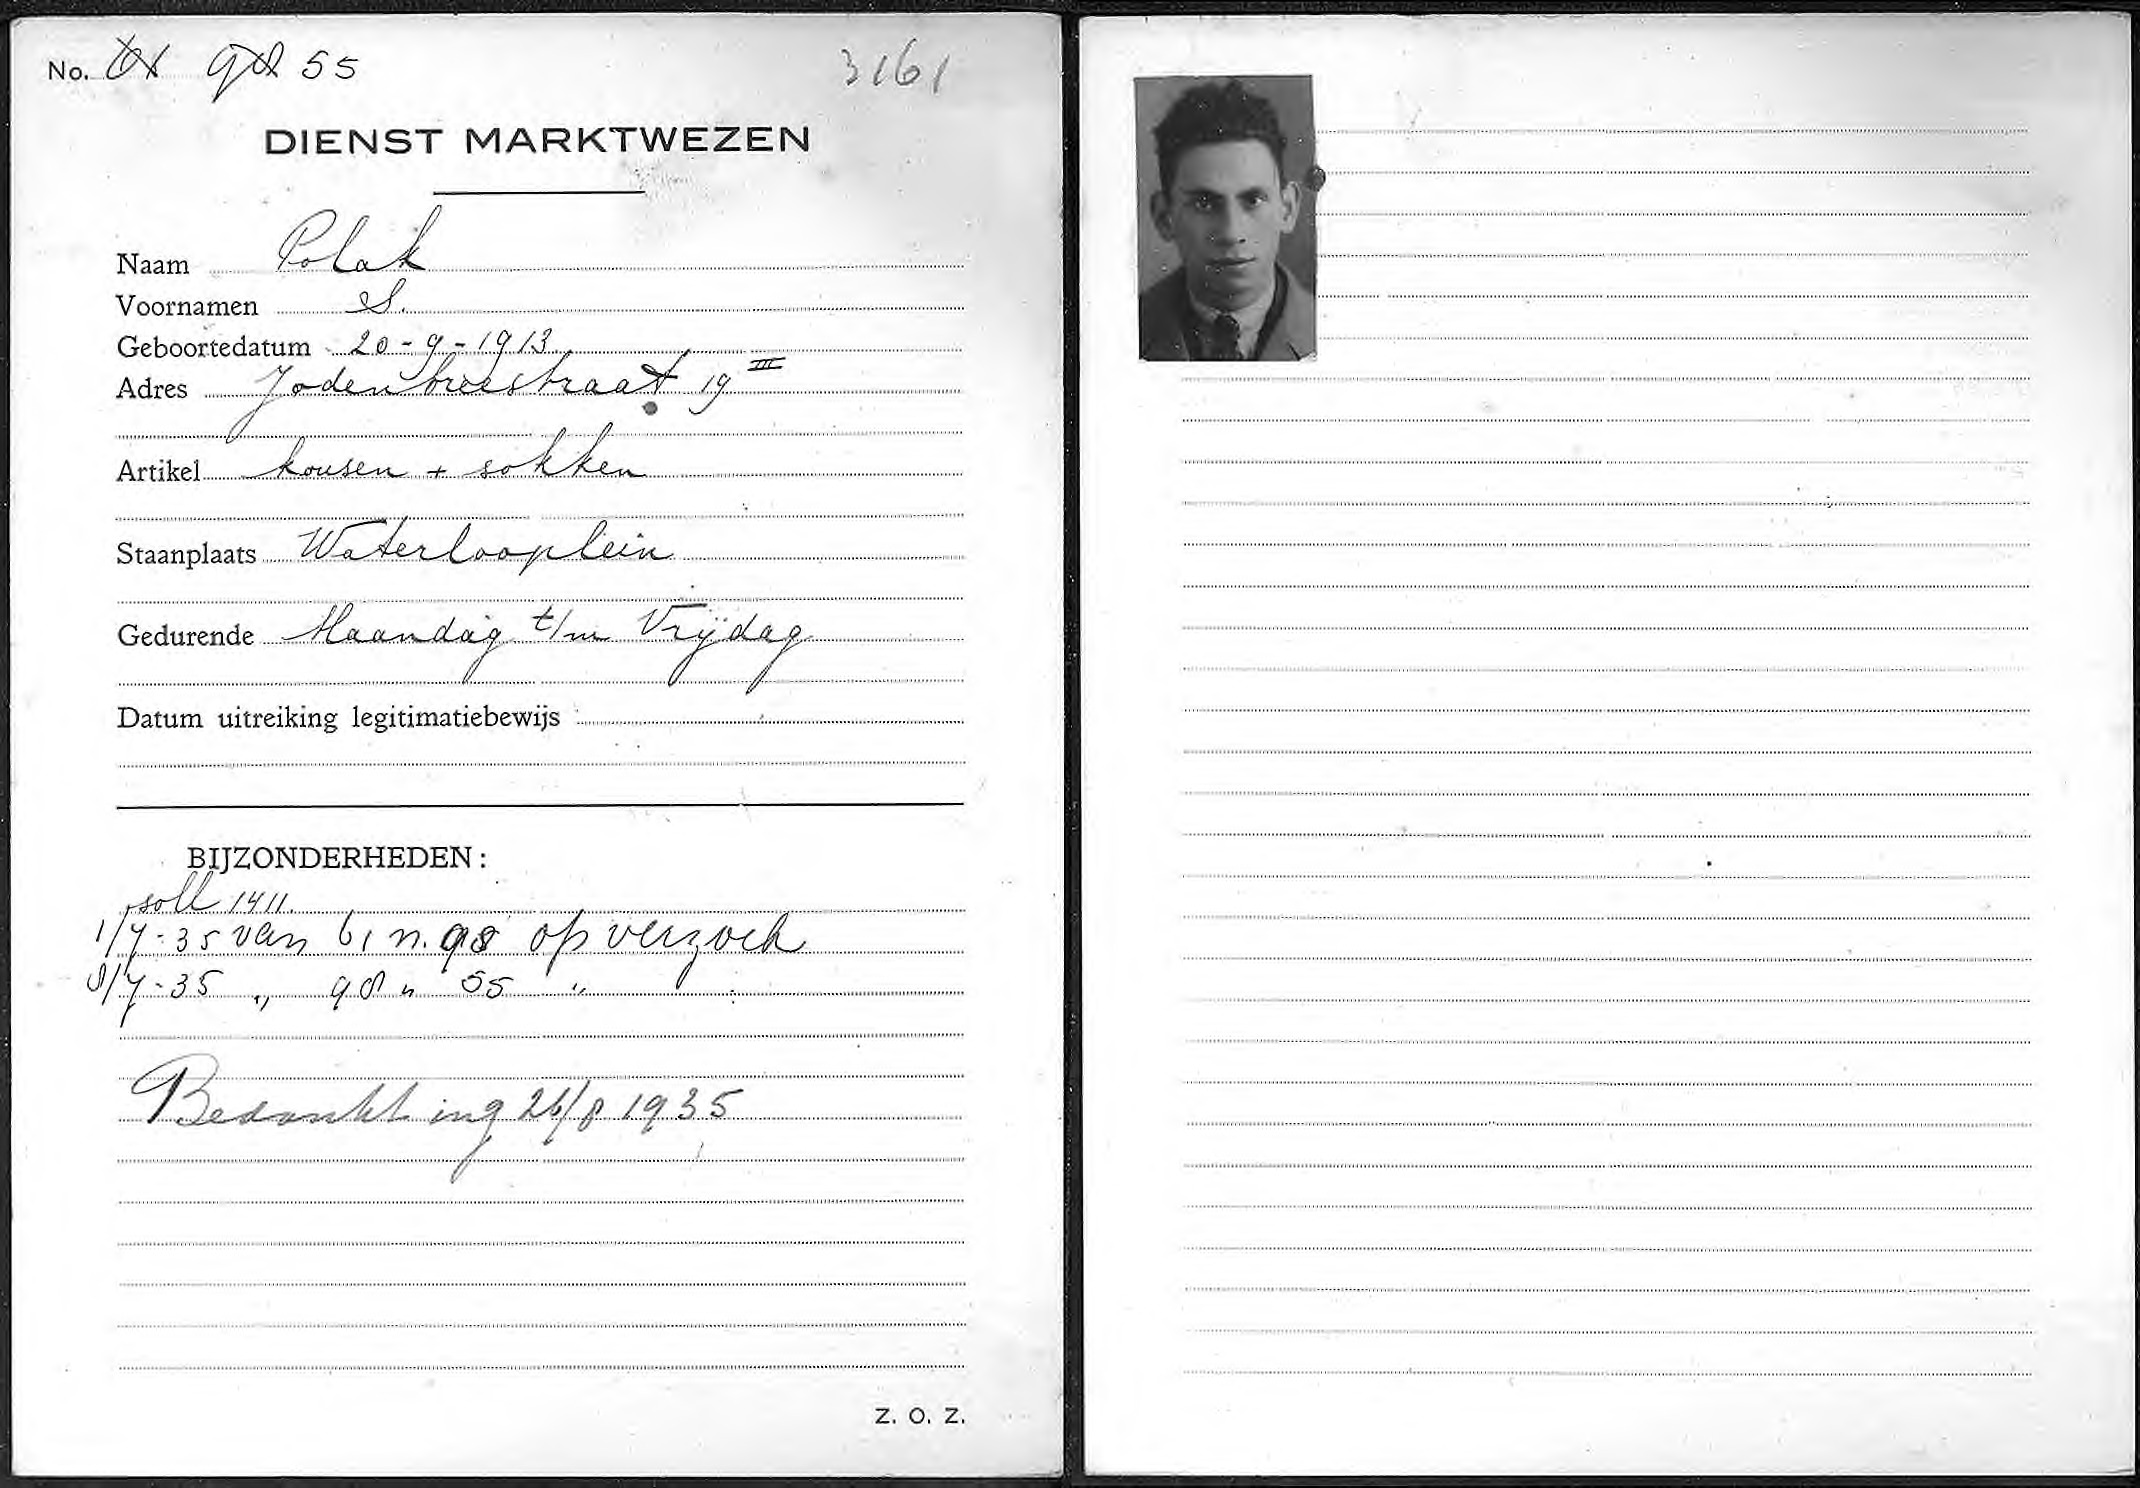 No. 61 98 55
3161
DIENST MARKTWEZEN
Naam Polak
Voornamen S.
Geboortedatum 20-9-1913
Adres Jodenbreestraat 19 III
Artikel kousen + sokken
Staanplaats Waterlooplein
Gedurende Maandag t/m Vrijdag
Datum uitreiking legitimatiebewijs
BIJZONDERHEDEN:
soll 1411.
1/7-35 van 61 n. 98 op verzoek
8/7-35 „ 98 „ 55 „
Bedankt ing 26/8 1935
Z. O. Z.